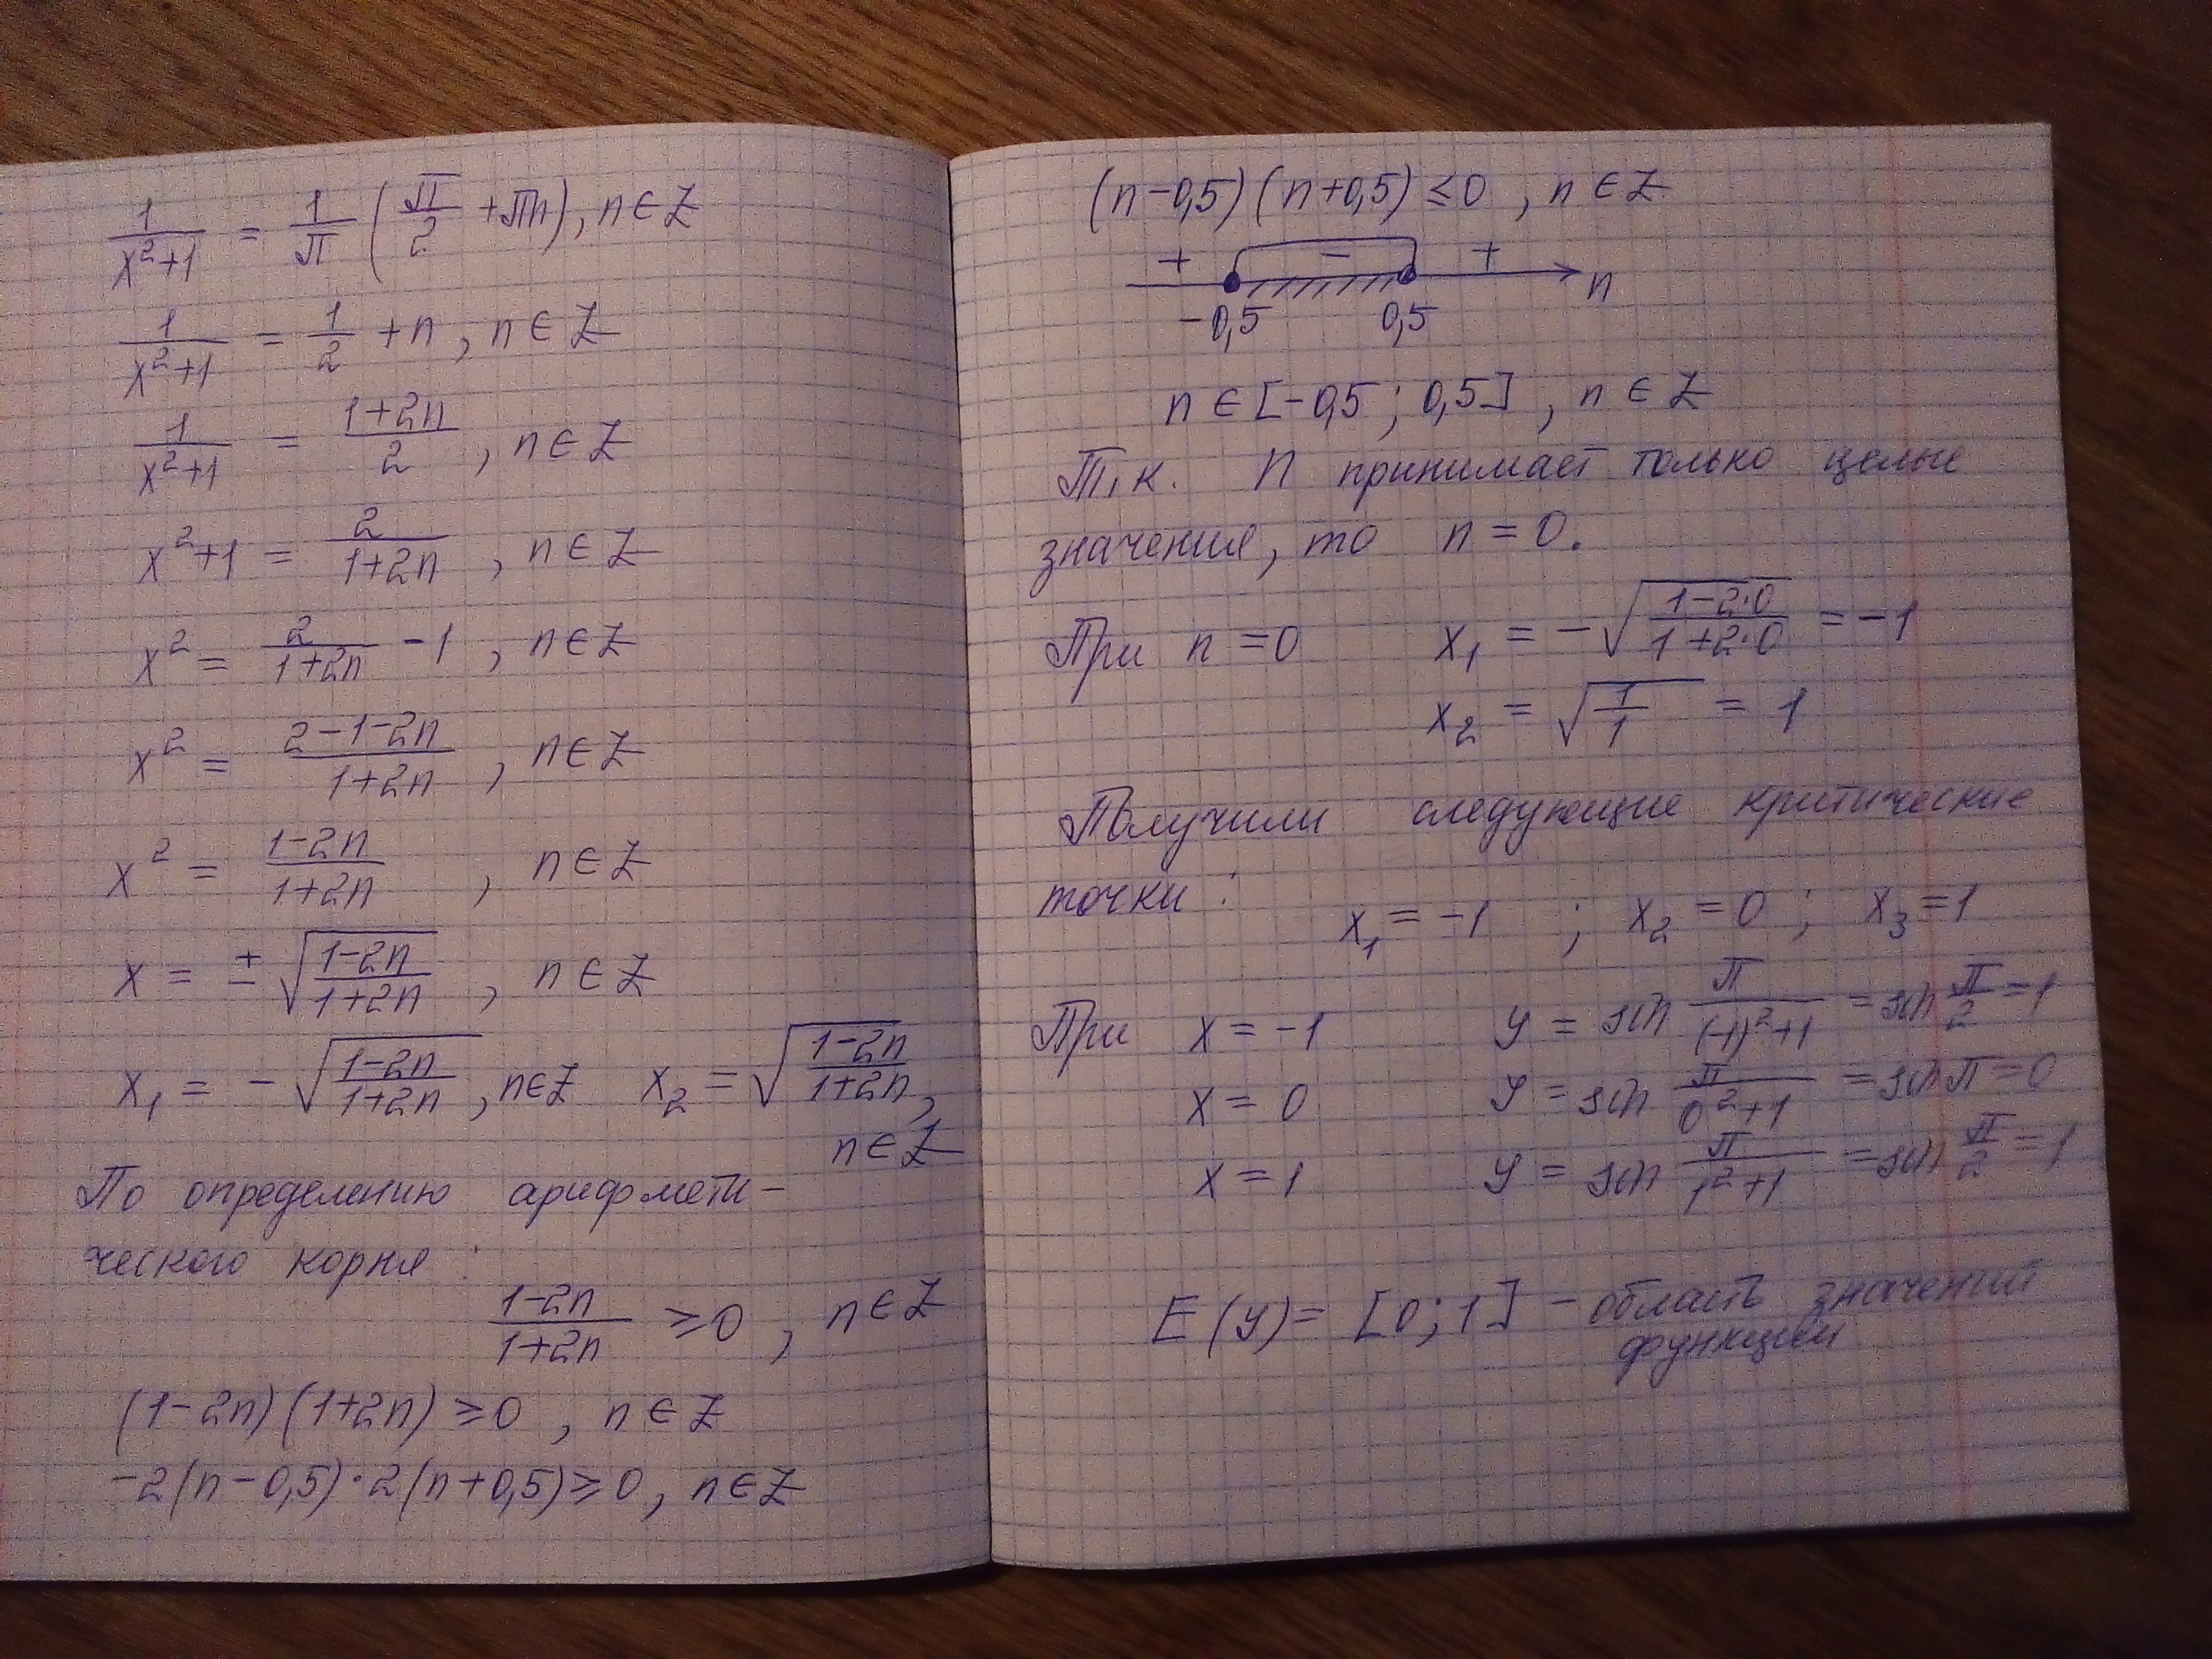 1/(x²+1) = 1/π (π/2 + πn), n ∈ Z
1/(x²+1) = 1/2 + n, n ∈ Z
1/(x²+1) = (1+2n)/2, n ∈ Z
x²+1 = 2/(1+2n), n ∈ Z
x² = 2/(1+2n) − 1, n ∈ Z
x² = (2−1−2n)/(1+2n), n ∈ Z
x² = (1−2n)/(1+2n), n ∈ Z
x = ± √((1−2n)/(1+2n)), n ∈ Z
x₁ = − √((1−2n)/(1+2n)), n∈Z x₂ = √((1−2n)/(1+2n)),
n ∈ Z
По определению арифмети-
ческого корня :
(1−2n)/(1+2n) ⩾ 0, n ∈ Z
(1−2n)(1+2n) ⩾ 0, n ∈ Z
−2(n−0,5)·2(n+0,5) ⩾ 0, n ∈ Z
(n−0,5)(n+0,5) ⩽ 0, n ∈ Z
+ − +
−0,5 0,5 n
n ∈ [−0,5 ; 0,5], n ∈ Z
Т.к. n принимает только целые
значения, то n = 0.
При n = 0 x₁ = −√((1−2·0)/(1+2·0)) = −1
x₂ = √(1/1) = 1
Получили следующие критические
точки :
x₁ = −1 ; x₂ = 0 ; x₃ = 1
При x = −1 y = sin π/((−1)²+1) = sin π/2 = 1
x = 0 y = sin π/(0²+1) = sin π = 0
x = 1 y = sin π/(1²+1) = sin π/2 = 1
E(y) = [0;1] – область значений
функции